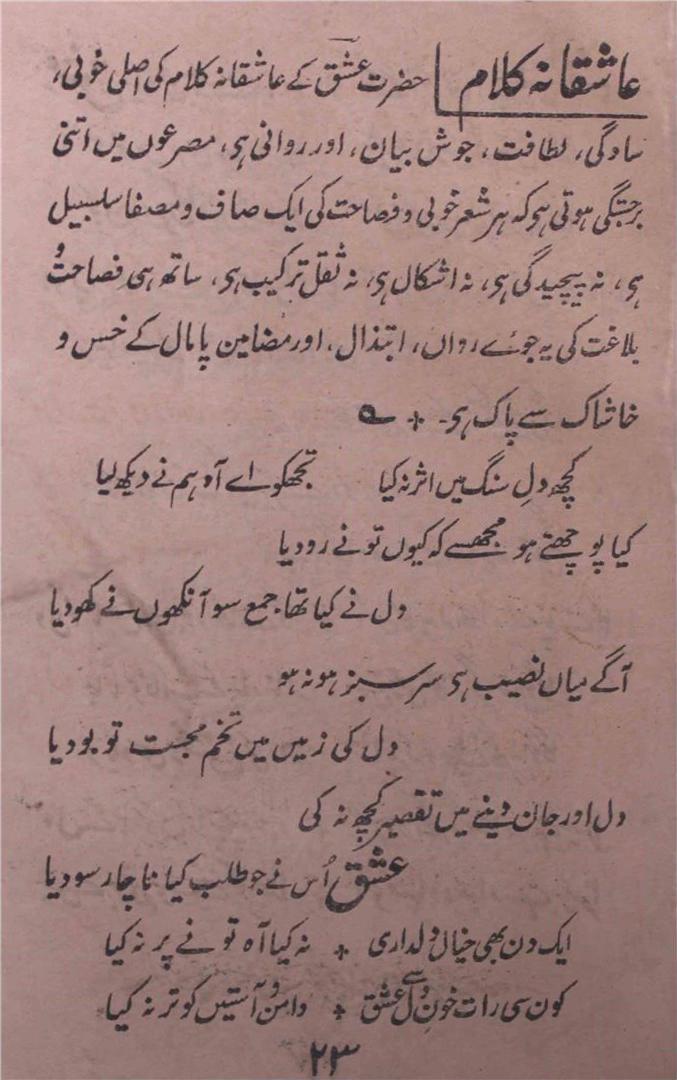 عاشقانہ کلام حضرت عشق کے عاشقانہ کلام کی اصلی خوبی،
سادگی، لطافت، جوش بیان، اور روانی ہی، مصرعوں میں اتنی
برجستگی ہوتی ہو کہ ہر شعر خوبی و فصاحت کی ایک صاف و مصفا سلسبیل
ہی، نہ پیچیدگی ہی، نہ اشکال ہی، نہ ثقل ترکیب ہی، ساتھ ہی فصاحت و
بلاغت کی یہ جوئے رواں، ابتذال، اور مضامین پامال کے خس و
خاشاک سے پاک ہی۔ + ؎
کچھ دلِ سنگ میں اثر نہ کیا تجھکو اے آہ ہم نے دیکھ لیا
کیا پوچھتے ہو مجھسے کہ کیوں تو نے رو دیا
دل نے کیا تھا جمع سو آنکھوں نے کھو دیا
آگے میاں نصیب ہی سرسبز ہو نہ ہو
دل کی زمیں میں تخم محبت تو بو دیا
دل اور جان دینے میں تقصیر کچھ نہ کی
عشق اُس نے جو طلب کیا ناچار سو دیا
ایک دن بھی خیال دلداری + نہ کیا آہ تو نے پر نہ کیا
کون سی رات خونِ دل سے عشق + دامن و آستیں کو تر نہ کیا
۲۳